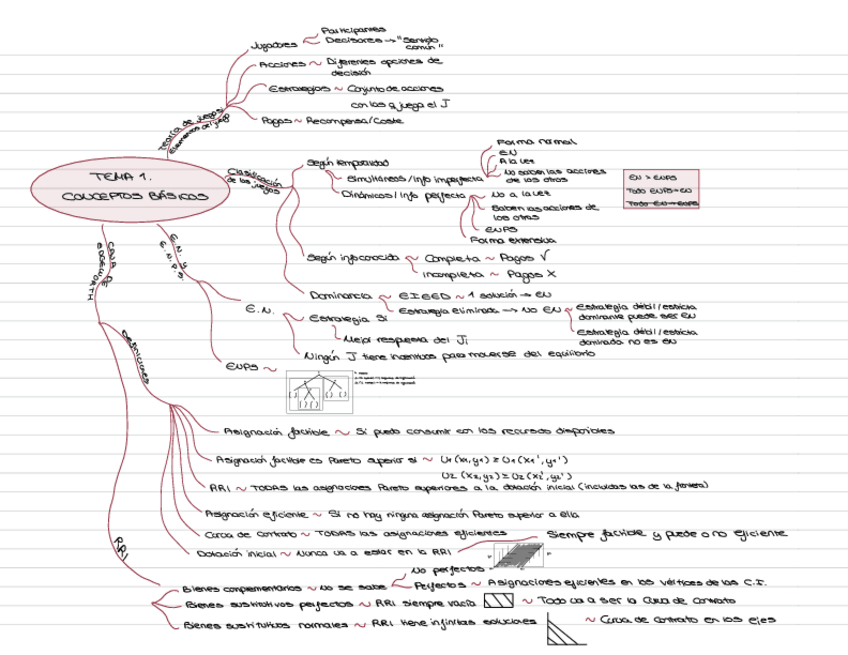 Participantes
Jugadores
Decisores → "Sentido común"
Acciones ~ Diferentes opciones de decisión
Estrategias ~ Conjunto de acciones con las q juega el J
Pagos ~ Recompensa/Coste
Teoría de juegos:
Elementos del juego
TEMA 1.
CONCEPTOS BÁSICOS
Clasificación de los juegos
Según temporalidad
Simultáneos/info imperfecta
Forma normal
EN
A la vez
No saben las acciones de los otros
Dinámicos/info perfecta
No a la vez
Saben las acciones de los otros
ENPS
Forma extensiva
EN > ENPS
Todo ENPS = EN
Todo EN = ENPS
Según info conocida ~ Completa ~ Pagos √
incompleta ~ Pagos X
Dominancia ~ EIEED ~ 1 solución → EN
Estrategia eliminada → NO EN
Estrategia débil/estricta dominante puede ser EN
Estrategia débil/estricta dominada no es EN
E.N. y E.N.P.S.
E.N.
Estrategia Si
Mejor respuesta del Ji
Ningún J tiene incentivos para moverse del equilibrio
ENPS ~
CAJA DE EDGEWORTH
Definiciones
Asignación factible ~ Si puedo consumir con los recursos disponibles
Asignación factible es Pareto superior si ~ U1(x1,y1) ≥ U1(x1',y1')
U2 (x2,y2) ≥ U2(x2',y2')
RRI ~ TODAS las asignaciones Pareto superiores a la dotación inicial (incluidas las de la frontera)
Asignación eficiente ~ Si no hay ninguna asignación Pareto superior a ella
Curva de Contrato ~ TODAS las asignaciones eficientes
Dotación inicial ~ Nunca va a estar en la RRI
Siempre factible y puede o no eficiente
RRI
Bienes complementarios ~ No se sabe
No perfectos
Perfectos ~ Asignaciones eficientes en los vértices de las C.I.
Bienes sustitutivos perfectos ~ RRI siempre vacía ~ Todo va a ser la Curva de Contrato
Bienes sustitutivos normales ~ RRI tiene infinitas soluciones ~ Curva de Contrato en los ejes